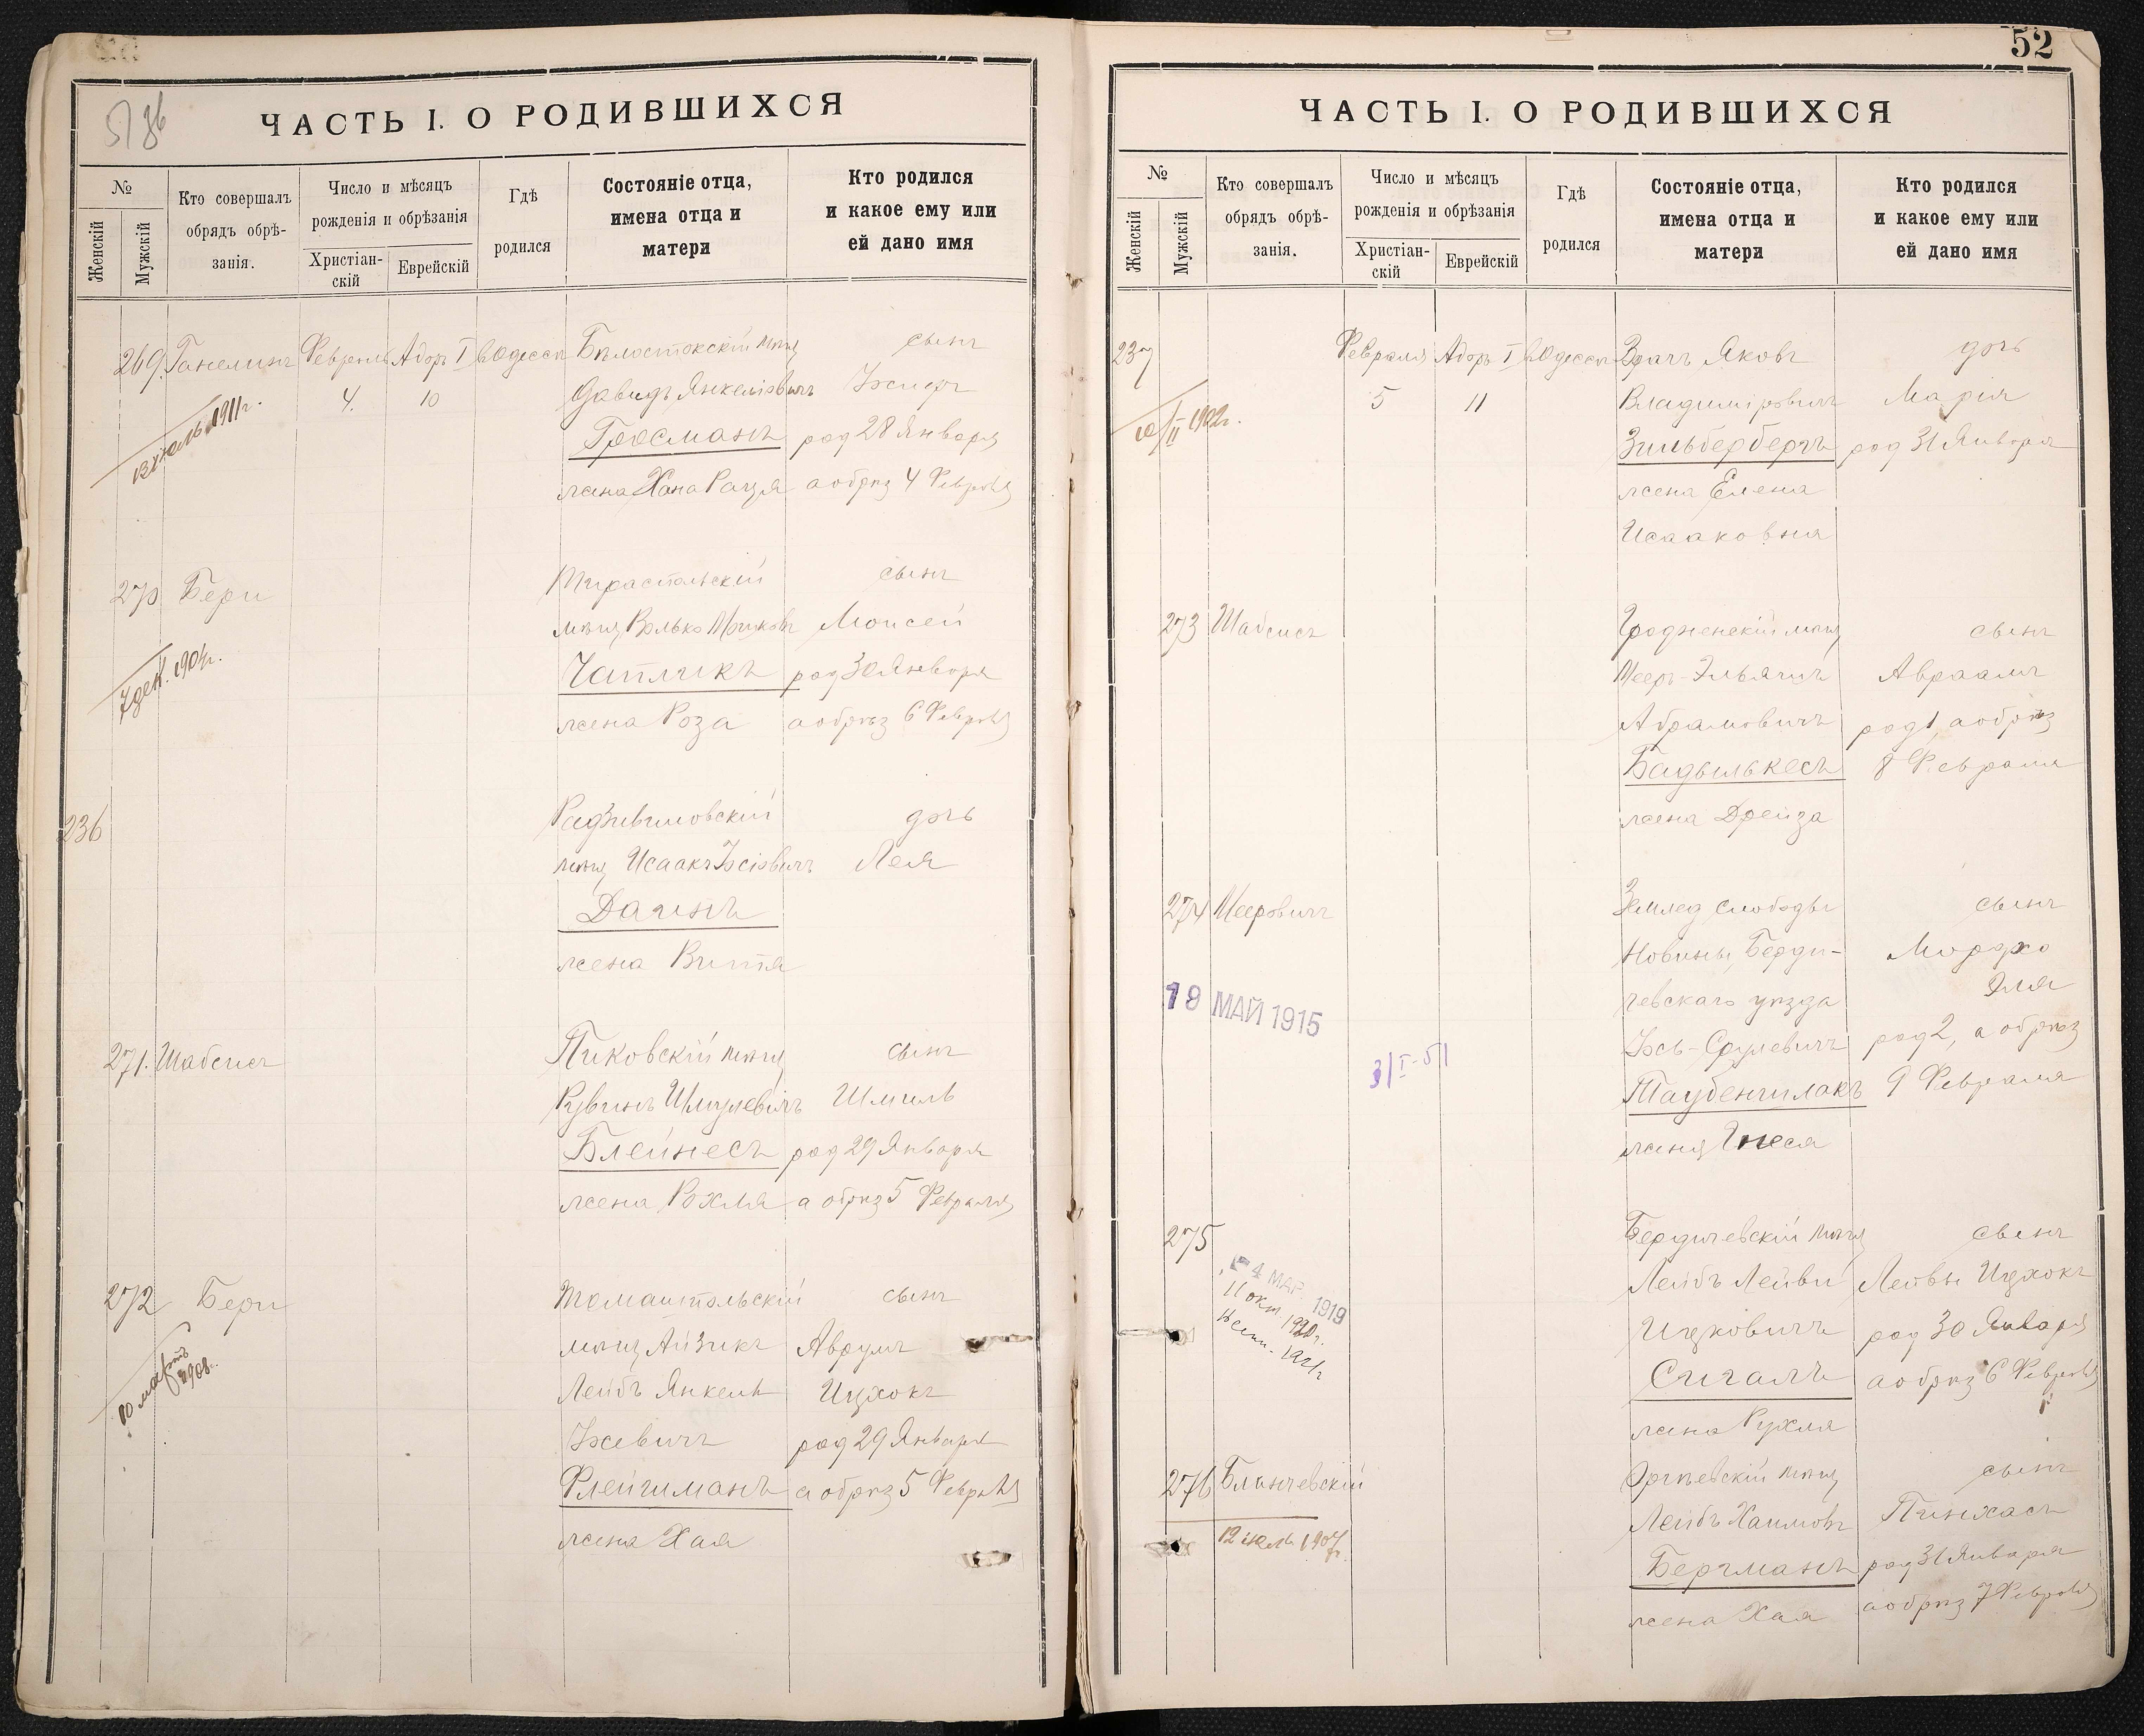 5786
ЧАСТЬ I. О РОДИВШИХСЯ
№
Женскій
Мужскій
Кто совершалъ обрядъ обрѣ-занія.
Число и мѣсяцъ рожденія и обрѣзанія
Христіан-скій
Еврейскій
Гдѣ родился
Состояніе отца, имена отца и матери
Кто родился и какое ему или ей дано имя
269. Ганелинъ Февраля Адоръ I въ Одессѣ Бѣлостокскій мѣщ сынъ
4. 10 Давидъ Янкеліовичъ
1911г.
Гросманъ род 28 Января
жена Хана Рация а обрѣз 4 Февраля
270 Бери
Тираспольскій сынъ
мѣщ Волько Мошковъ Моисей
7 дек. 1904г.
Чапликъ род 30 Января
жена Роза а обрѣз 6 Февраля
236
Радзивиловскій дочь
мѣщ Исаакъ Іосіовичъ Лея
Дагинъ
жена Витя
271. Шабсисъ
Пиковскій мѣщ сынъ
Рувинъ Шмулевичъ Шмиль
Блейнесъ род 29 Января
жена Рохля а обрѣз 5 Февраля
272 Бери
Томашпольскій сынъ
мѣщ Айзикъ Аврумъ
10 мартъ 1908.
Лейбъ Янкель Ицхокъ
Іосевичъ род 29 Января
Флейшманъ а обрѣз 5 Февраля
жена Хая
52
ЧАСТЬ I. О РОДИВШИХСЯ
№
Женскій
Мужскій
Кто совершалъ обрядъ обрѣ-занія.
Число и мѣсяцъ рожденія и обрѣзанія
Христіан-скій
Еврейскій
Гдѣ родился
Состояніе отца, имена отца и матери
Кто родился и какое ему или ей дано имя
237 Февраля Адоръ I въ Одессѣ Врачъ Яковъ дочь
5 11 Владиміровичъ Марія
10/II 1902г.
Зильбербергъ род 31 Января
жена Елена
Исааковна
273 Шабсисъ
Гродненскій мѣщ сынъ
Мееръ-Эльягиъ Авраамъ
Абрамовичъ род 1, а обрѣз
Бадылькесъ 8 Февраля
жена Дрейза
274 Мееровичъ
Землед слободы сынъ
Новины, Берди- Мордхо
чевскаго уѣзда Эля
19 МАЙ 1915
3/I-51
Іось-Срулевичъ род 2, а обрѣз
Таубеншлакъ 9 Февраля
жена Гнеся
275
Бердичевскій мѣщ сынъ
4 МАР 1919
11 окт. 1920г.
1921г
Лейбъ Лейви Лейвы Ицхокъ
Ицковичъ род 30 Января
Сигалъ а обрѣз 6 Февраля
жена Рухля
276 Блинчевскій
Оргѣевскій мѣщ сынъ
12 іюль 1907г.
Лейбъ Хаимовъ Пинхасъ
Бергманъ род 31 Января
жена Хая а обрѣз 7 Февраля